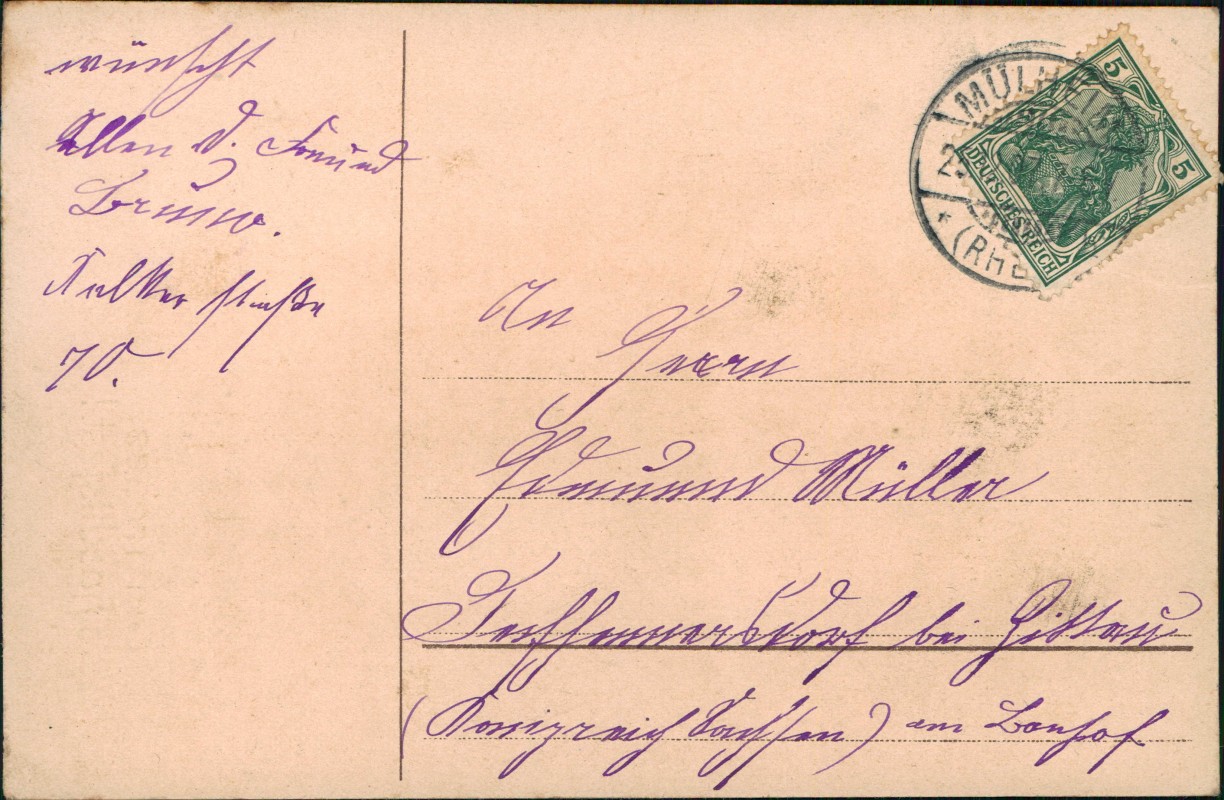 wünscht
Allen d. Freund
Bruno.
straße
70.
An
Herrn
Edmund Müller
Seifhennersdorf bei Zittau
(Königreich Sachsen) am Banhof
MÜLH
(RHE
5
5
DEUTSCHES REICH